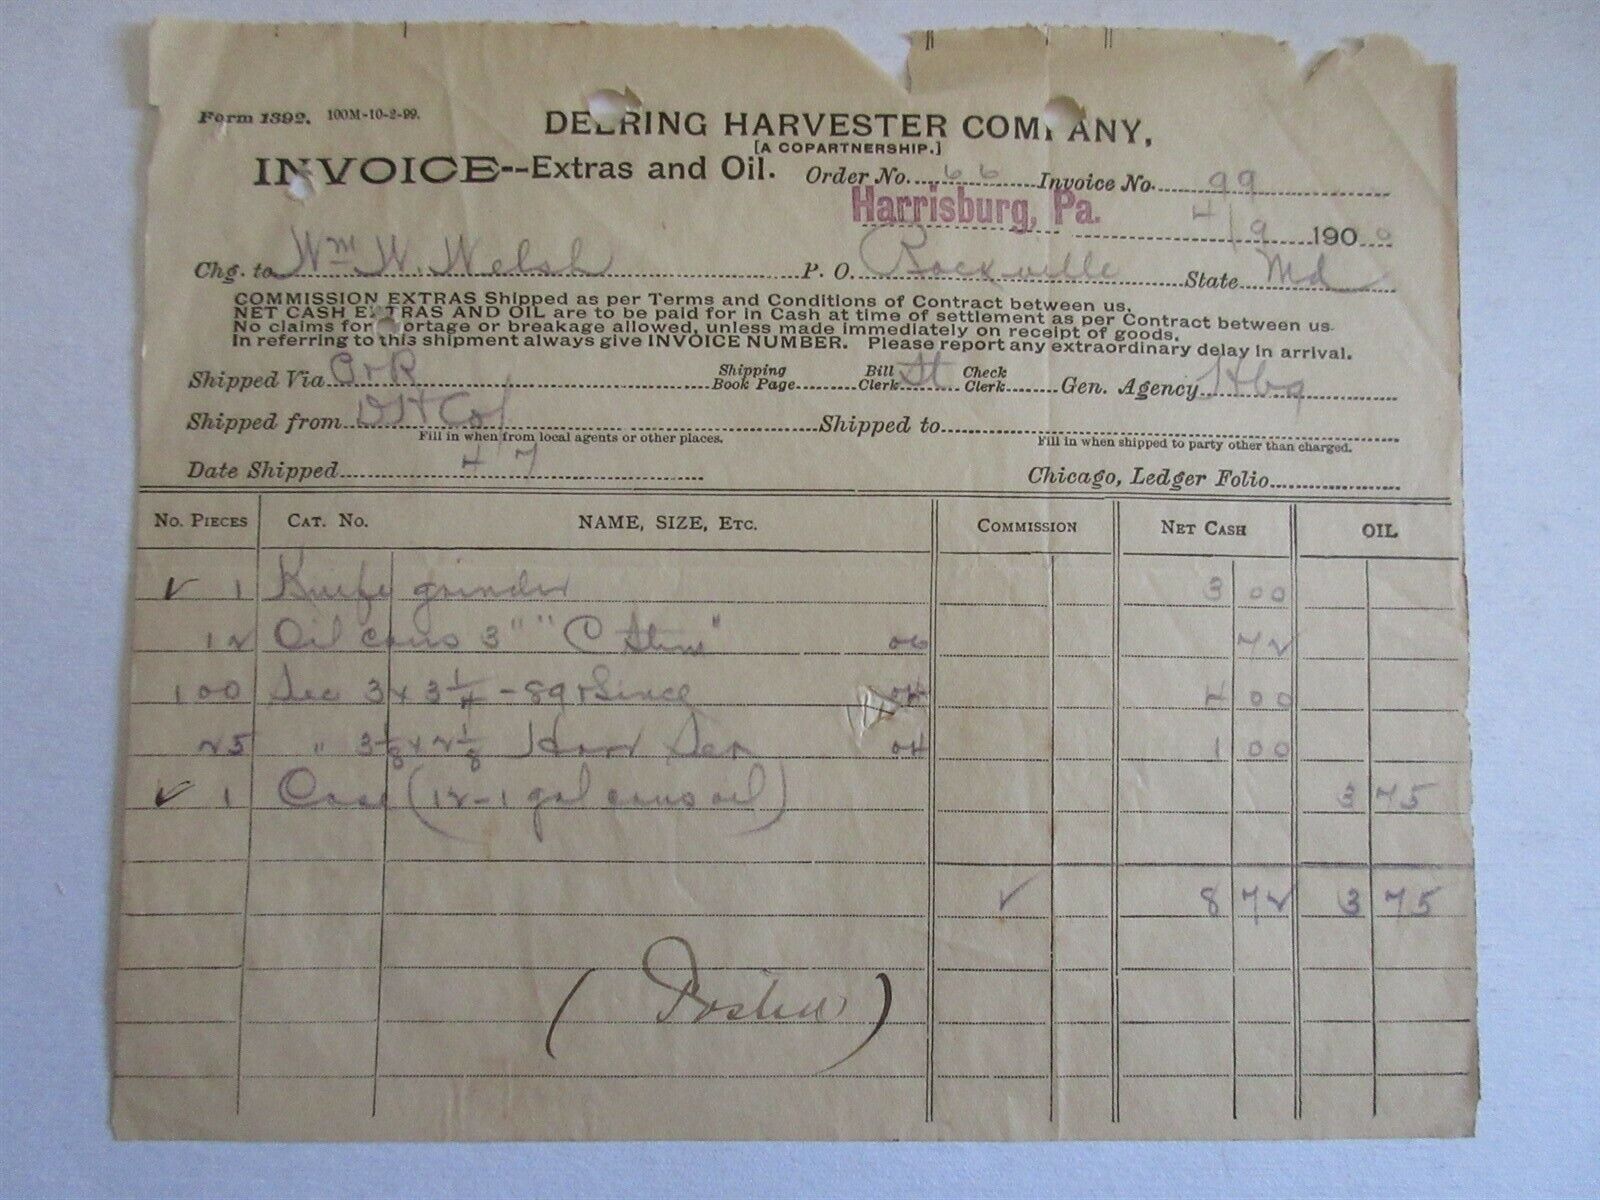 Form 1392. 100M-10-2-99.
DEERING HARVESTER COMPANY,
[A COPARTNERSHIP.]
INVOICE--Extras and Oil. Order No. 66 Invoice No. 99
Harrisburg, Pa. 4/9 1900
Chg. to Wm W. Welsh P. O. Rockville State Md
COMMISSION EXTRAS Shipped as per Terms and Conditions of Contract between us.
NET CASH EXTRAS AND OIL are to be paid for in Cash at time of settlement as per Contract between us.
No claims for shortage or breakage allowed, unless made immediately on receipt of goods.
In referring to this shipment always give INVOICE NUMBER. Please report any extraordinary delay in arrival.
Shipped Via Shipping Book Page Bill Clerk Check Clerk Gen. Agency Hbg
Shipped from DH Co Shipped to
Fill in when from local agents or other places. Fill in when shipped to party other than charged.
Date Shipped 4 7 Chicago, Ledger Folio
No. Pieces Cat. No. NAME, SIZE, Etc. Commission Net Cash OIL
✓ 1 Knife grinder 3 00
12 Oil cans 3" " C 06 72
100 Sec 3 x 3 1/4 - 89 & Since 04 4 00
25 " 3 1/8 x 2 1/8 Sec 04 1 00
✓ 1 Case (12-1 gal cans oil) 3 75
✓ 8 72 3 75
(Posted)